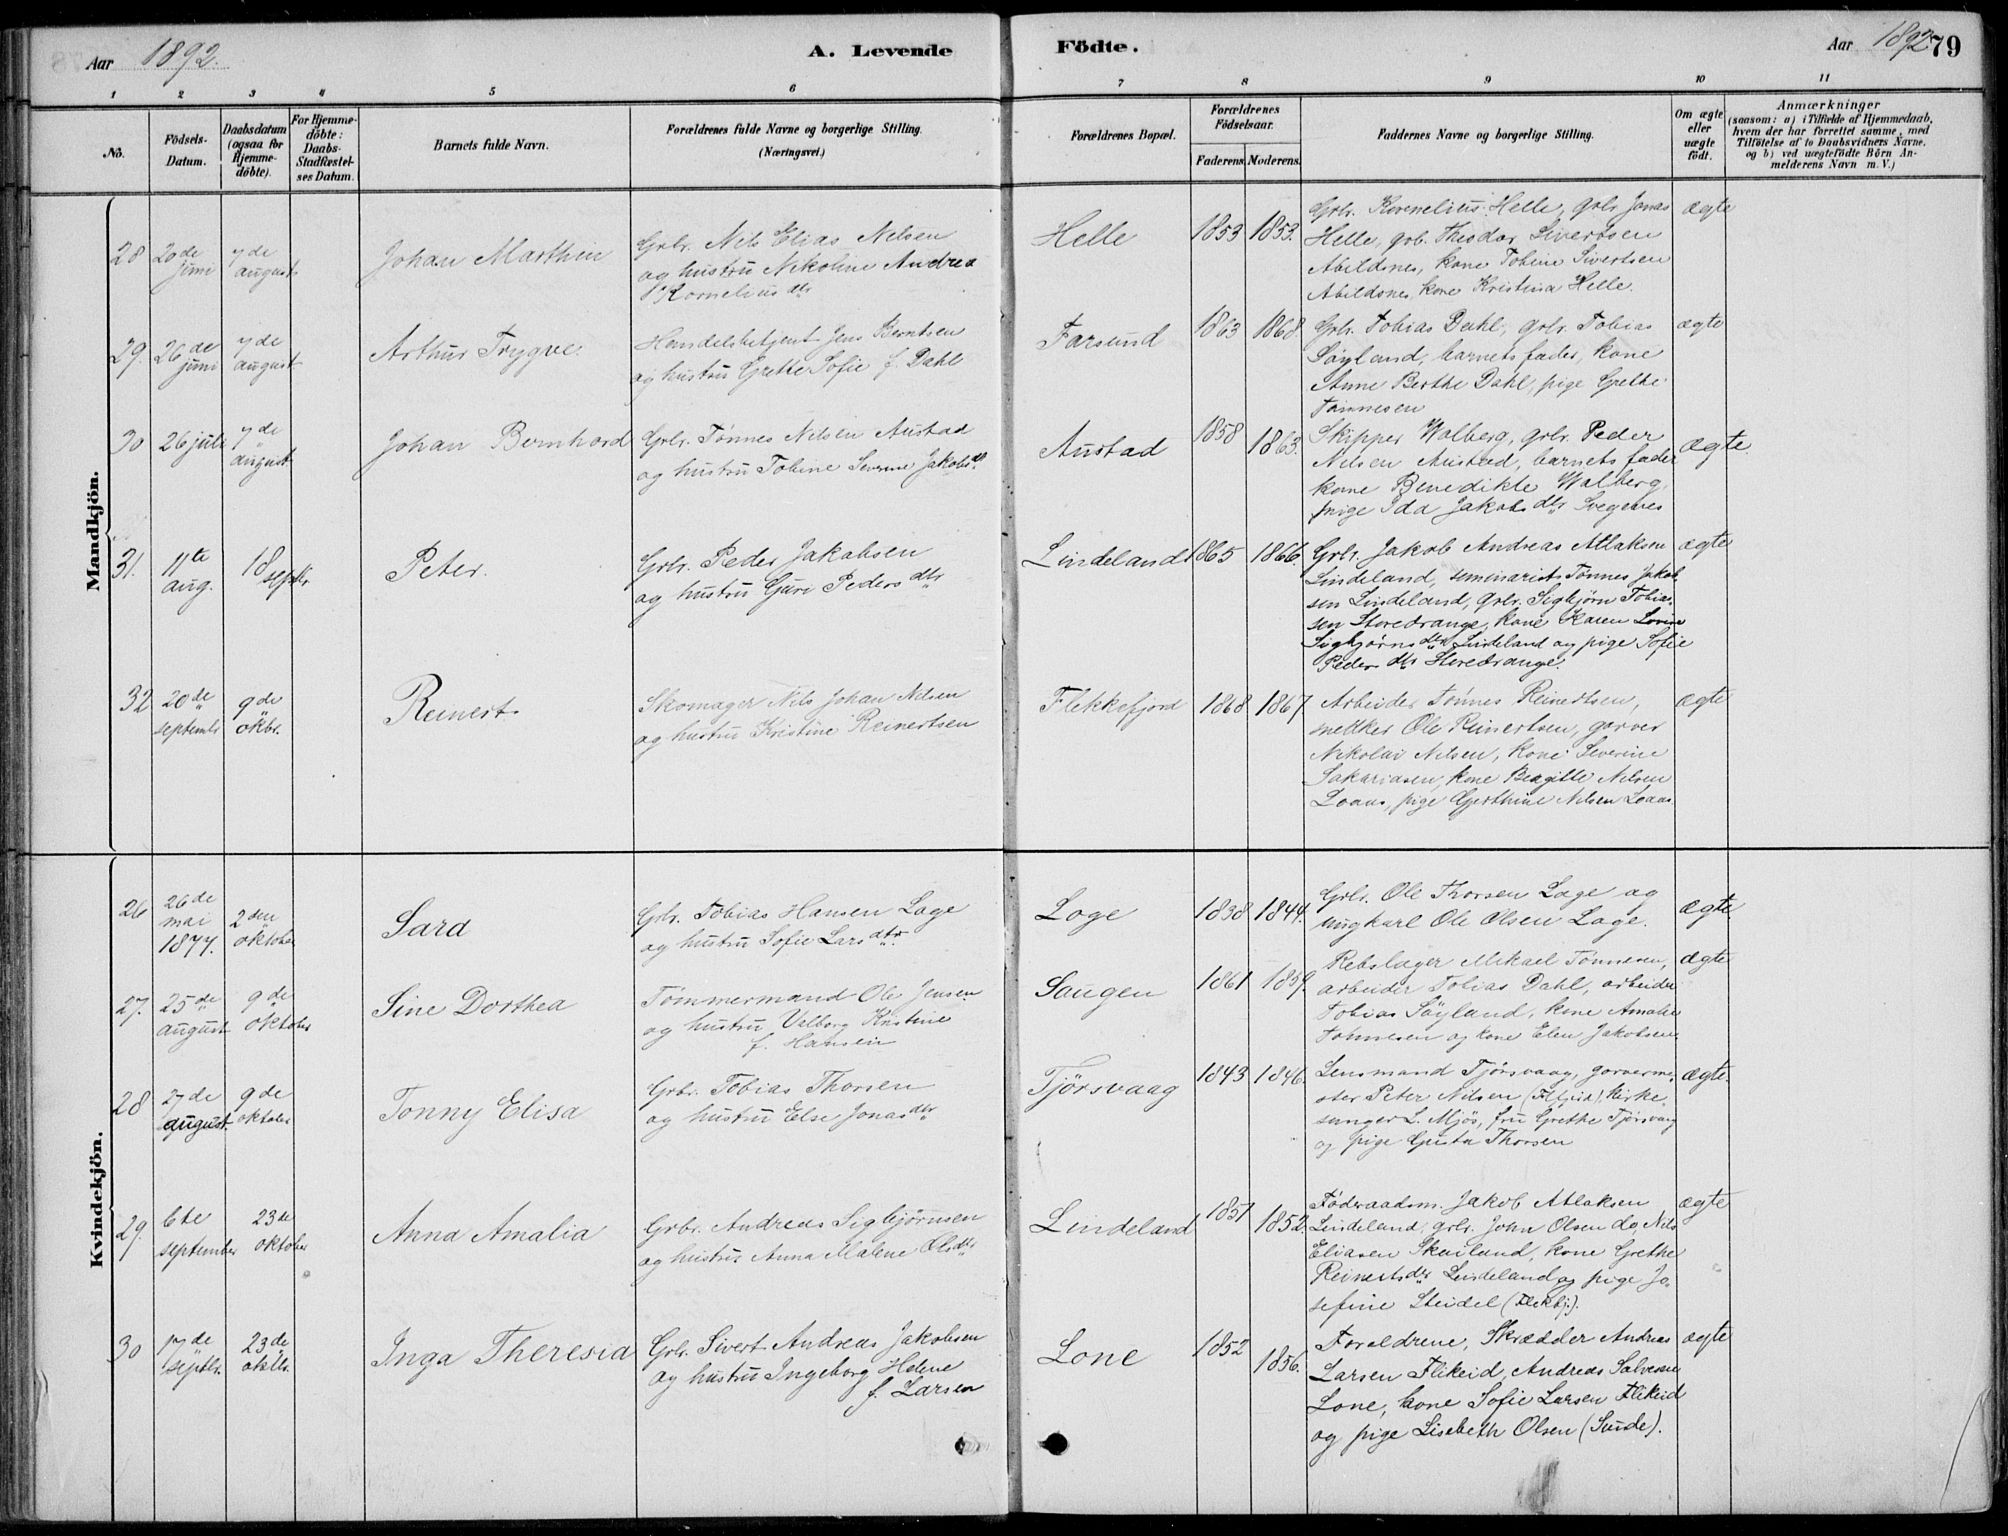 Aar 1892.
A. Levende Födte.
Aar 1892
79
1 2 3 4 5 6 7 8 9 10 11
No.
Födsels-Datum.
Daabsdatum (ogsaa for Hjemme-döbte).
For Hjemme-döbte: Daabs-Stadfæstel-ses Datum.
Barnets fulde Navn.
Forældrenes fulde Navne og borgerlige Stilling.
(Næringsvei.)
Forældrenes Bopæl.
Forældrenes Födselsaar.
Faderens. Moderens.
Faddernes Navne og borgerlige Stilling.
Om ægte eller uægte födt.
Anmærkninger
(saasom: a) i Tilfælde af Hjemmedaab,
hvem der har forrettet samme, med
Tilföielse af to Daabsvidners Navne,
og b) ved uægtefödte Börn An-
melderens Navn m. V.)
Mandkjön.
28 20de juni 7de august Johan Marthin
Grbr. Nils Elias Nelsen
og hustru Nikoline Andrea
Kornelius dtr
Helle 1853 1853.
Grbr. Kornelius Helle, grbr Jonas
Helle, grb. Theodor Sivertsen
Abildsnes, kone Tobine Sivertsen
Abildsnes, kone Kristina Helle.
ægte
29. 26de juni 7de august Arthur Trygve.
Handelsbetjent Jens Berntsen
og hustru Grethe Sofie f. Dahl
Farsund 1863 1868.
Grbr. Tobias Dahl, grbr. Tobias
Söyland, barnets fader, kone
Anne Berthe Dahl, pige Grethe
Tönnesen
ægte
30 26 juli 7de august Johan Bernhard
Grbr. Tönnes Nilsen Austad
og hustru Tobine Severine Jakobsd.
Austad 1858 1863.
Skipper Walberg, grbr. Peder
Nilsen Austad, barnets fader
kone Benedikte Walberg,
pige Ida Jakobs dtr Svegenes
ægte
31. 11te aug. 18 septbr. Peter.
Grbr. Peder Jakobsen
og hustru Guri Peders dtr
Lindeland 1865 1866.
Grbr. Jakob Andreas Atlaksen
Lindeland, seminarist Tönnes Jakob-
sen Lindeland, grbr. Sigbjörn Tobias-
sen Storedrange, kone Karen Lovise
Sigbjörns dtr Lindeland og pige Sofie
Peders dtr Storedrange.
ægte
32 20de septembr 9de okbr. Reinert
Skomager Nils Johan Nilsen
og hustru Kristine Reinertsen
Flekkefjord 1868 1867
Arbeider Tönnes Reinertsen,
snedker Ole Reinertsen, garver
Nikolai Nilsen, kone Severine
Sakariasen, kone Bergitte Nilsen
Loaas, pige Gjerthine Nilsen Loaas.
ægte
Kvindekjön.
26 26de mai 1877. 2den oktober Sara
Grbr. Tobias Hansen Loge
og hustru Sofie Lars dtr.
Loge 1838 1844.
Grbr. Ole Thorsen Loge og
ungkarl Ole Olsen Loge.
ægte
27. 25de august 9de oktober Sine Dorthea
Tömmermand Ole Jensen
og hustru Valborg Kristine
f. Hansen
Saugen 1861 1859.
Rebslager Mikael Tönnesen,
arbeider Tobias Dahl, arbeider
Tobias Söyland, kone Amalie
Tönnesen og kone Elen Jakobsen
ægte
28 27de august. 9de oktober Tonny Elisa
Grbr. Tobias Thorsen
og hustru Else Jonas dtr
Tjörsvaag 1843 1846.
Lensmand Tjörsvaag, garverme-
ster Peter Nilsen (Flfjord), kirke-
sanger L. Mjös, fru Grethe Tjörsvaag
og pige Gusta Thorsen
ægte.
29. 6te september 23de oktober Anna Amalia
Grbr. Andreas Sigbjörnsen
og hustru Anna Malene Olsdtr
Lindeland 1851 1852.
Föderaadsm. Jakob Atlaksen
Lindeland, grbr. John Olsen do, Nils
Eliasen Skailand, kone Grethe
Reinertsdtr Lindeland og pige Jo-
sefine Steidel (Flekfj.).
ægte
30 17de septbr. 23de oktbr. Inga Theresia
Grbr. Sivert Andreas Jakobsen
og hustru Ingeborg Helene
f. Larsen
Lone 1852 1856.
Forældrene, Skrædder Andreas
Larsen Flikeid, Andreas Salvesen
Lone, kone Sofie Larsen Flikeid
og pige Lisebeth Olsen (Sunde).
ægte